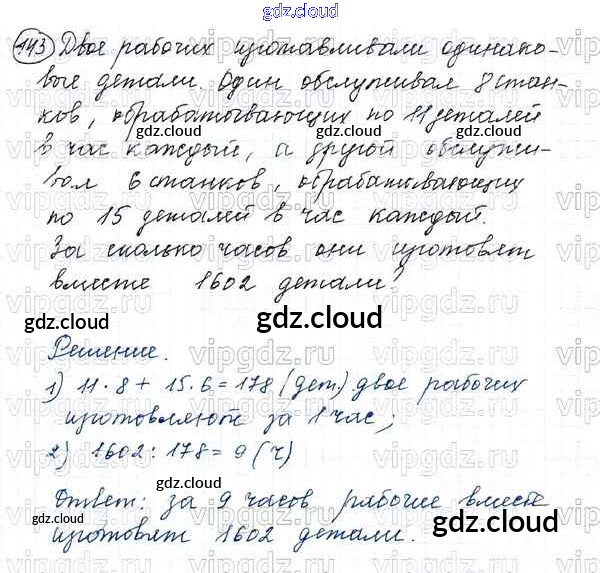 gdz.cloud
143 Двое рабочих изготавливали одинако-
вые детали. Один обслуживал 8 стан-
ков, обрабатывающих по 11 деталей
gdz.cloud gdz.cloud
в час каждый, а другой обслужи-
вал 6 станков, обрабатывающих
по 15 деталей в час каждый.
За сколько часов они изготовят
вместе 1602 детали?
gdz.cloud gdz.cloud
Решение.
1) 11·8 + 15·6 = 178 (дет) двое рабочих
изготовляют за 1 час;
2) 1602 : 178 = 9 (ч)
Ответ: за 9 часов рабочие вместе
gdz.cloud gdz.cloud
изготовят 1602 детали.
vipgdz.ru